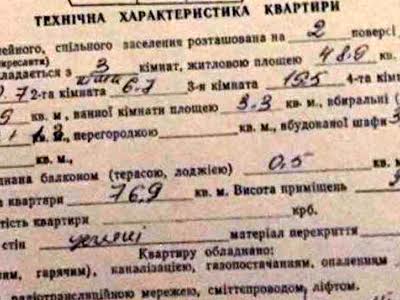 ТЕХНІЧНА ХАРАКТЕРИСТИКА КВАРТИРИ
ейного, спільного заселення розташована на 2 поверсі
кресляти)
кладається з 3 кімнат, житловою площею 48.9 кв.
7 2-га кімната 6.7 3-я кімната 19.5 4-та кімн
9 кв. м, ванної кімнати площею 3.3 кв. м, вбиральні (
перегородкою кв. м, вбудованої шафи 3
кв. м,
днана балконом (терасою, лоджією) 0,5 кв. м,
а квартири 76.9 кв. м. Висота приміщень
тість квартири крб.
стін цегляні матеріал перекриття
Квартиру обладнано:
ним, гарячим), каналізацією, газопостачанням, опаленням
радіотрансляційною мережею, сміттєпроводом, ліфтом.